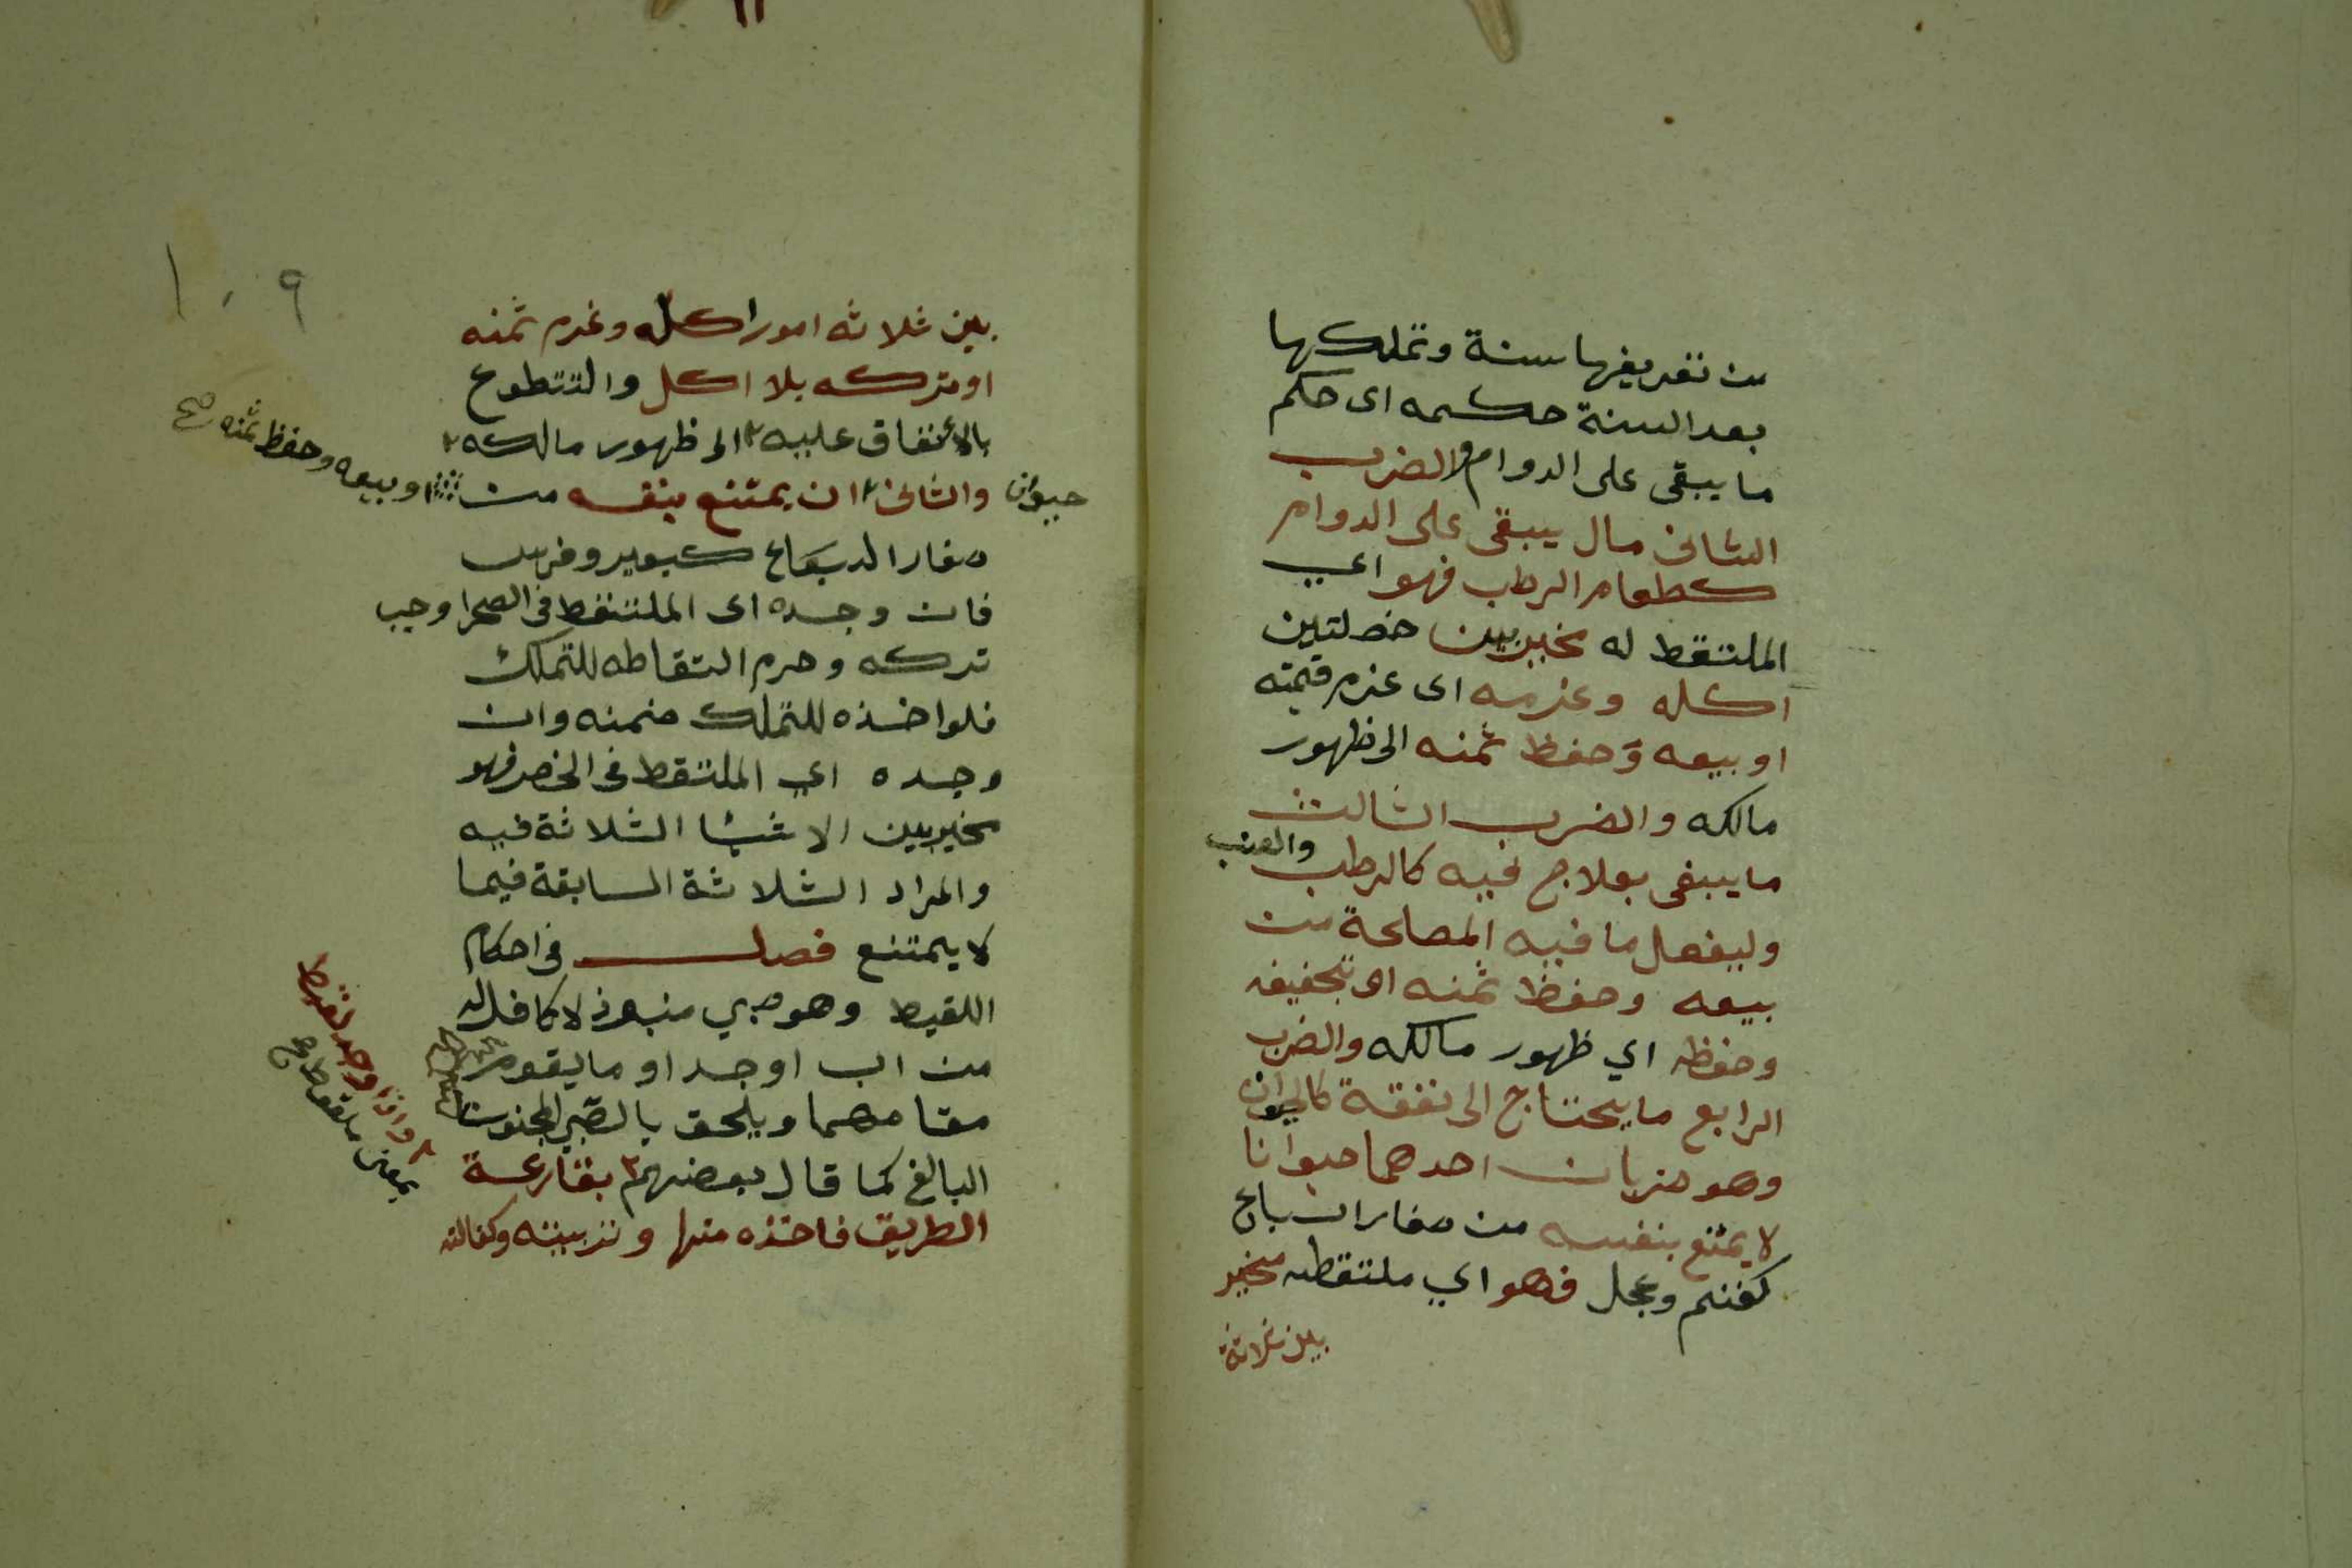 من تعريفها سنة وتملكها
بعد السنة حكمه اى حكم
ما يبقى على الدوام والضرب
الثانى مال يبقى على الدوام
كطعام الرطب فهو اي
الملتقط له مخير بين خصلتين
اكله وغرمه اى غرم قيمته
او بيعه وحفظ ثمنه الى ظهور
مالكه والضرب الثالث
ما يبقى بعلاج فيه كالرطب والعنب
وليفعل ما فيه المصلحة من
بيعه وحفظ ثمنه او تجفيفه
وحفظه اي ظهور مالكه والضرب
الرابع ما يحتاج الى نفقة كالحيوان
وهو ضربان احدهما حيوانا
لا يمتنع بنفسه من صغار السباع
كغنم وعجل فهو اي ملتقطه مخير
بين ثلاثة
١٠٩
بين ثلاثه امور اكله وغرم ثمنه
او تركه بلا اكل والتتطوع
بالأنفاق عليه الى ظهور مالكه
او بيعه وحفظ ثمنه صح
والثانى ان يمتنع بنفسه من
حيوان
صغار السباع كبعير وفرس
فان وجده اى الملتقط فى الصحرا وجب
تركه وحرم التقاطه للتملك
فلو اخذه للتملك ضمنه وان
وجده اي الملتقط فى الحضر فهو
مخير بين الاشيا الثلاثة فيه
والمراد الثلاثة السابقة فيما
لا يمتنع فصل فى احكام
اللقيط وهو صبي منبوذ لا كافل له
من اب او جد او ما يقوم
مقامهما ويلحق بالصبي المجنون
البالغ كما قال بعضهم بقارعة
الطريق فاخذه منها وتربيته وكفالته
واذا وجد لقيط
بمعنى ملقوط صح